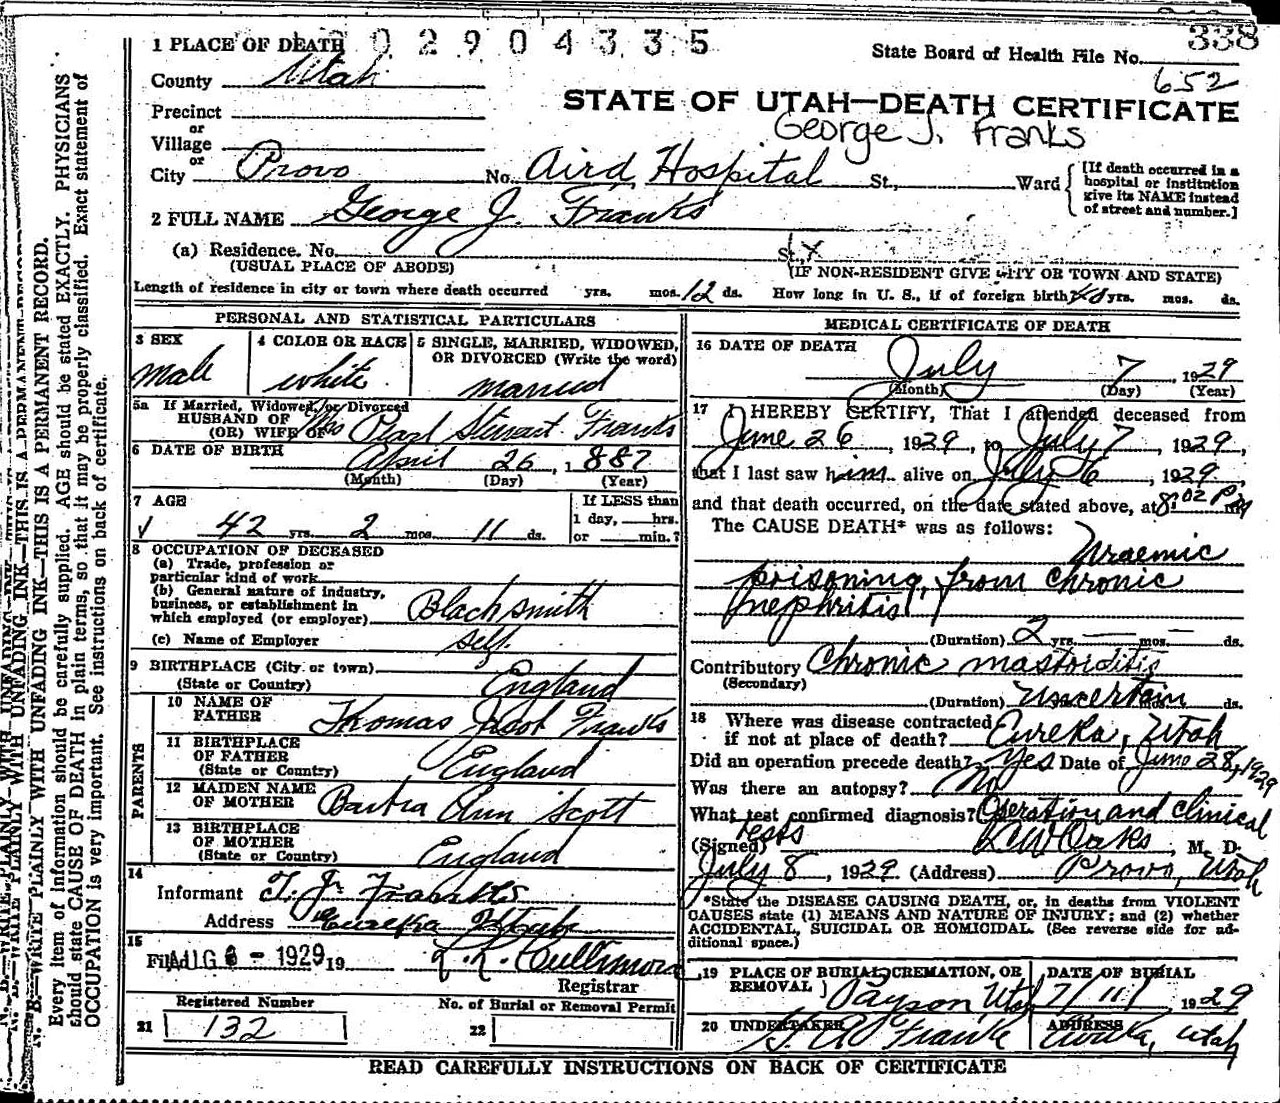 0 2 9 0 4 3 3 5
338
1 PLACE OF DEATH
State Board of Health File No.
652
County Utah
STATE OF UTAH—DEATH CERTIFICATE
George J. Franks
Precinct
or
Village
or
City Provo No. Aird Hospital St., Ward
[If death occurred in a
hospital or institution
give its NAME instead
of street and number.]
2 FULL NAME George J. Franks
(a) Residence. No. St., x
(USUAL PLACE OF ABODE) (IF NON-RESIDENT GIVE CITY OR TOWN AND STATE)
Length of residence in city or town where death occurred yrs. mos. 12 ds. How long in U. S., if of foreign birth? 40 yrs. mos. ds.
PERSONAL AND STATISTICAL PARTICULARS
3 SEX
male
4 COLOR OR RACE
white
5 SINGLE, MARRIED, WIDOWED,
OR DIVORCED (Write the word)
married
5a If Married, Widowed, or Divorced
HUSBAND OF
(OR) WIFE OF Mrs Pearl Stewart Franks
6 DATE OF BIRTH April 26, 1887
(Month) (Day) (Year)
7 AGE
42 yrs. 2 mos. 11 ds.
If LESS than
1 day, hrs.
or min.?
8 OCCUPATION OF DECEASED
(a) Trade, profession or
particular kind of work
(b) General nature of industry,
business, or establishment in
which employed (or employer) Blacksmith
(c) Name of Employer self
9 BIRTHPLACE (City or town)
(State or Country) England
PARENTS
10 NAME OF
FATHER Thomas Jacob Franks
11 BIRTHPLACE
OF FATHER
(State or Country) England
12 MAIDEN NAME
OF MOTHER Barbra Ann Scott
13 BIRTHPLACE
OF MOTHER
(State or Country) England
14
Informant T. J. Franks
Address Eureka Utah
15
Filed AUG 6 - 1929 19
L. L. Cullimore
Registrar
Registered Number
21 132
No. of Burial or Removal Permit
22
MEDICAL CERTIFICATE OF DEATH
16 DATE OF DEATH July 7, 1929
(Month) (Day) (Year)
17 I HEREBY CERTIFY, That I attended deceased from
June 26, 1929, to July 7, 1929,
that I last saw him alive on July 6, 1929
and that death occurred, on the date stated above, at 8:02 PM
The CAUSE DEATH* was as follows:
Uraemic
poisoning, from chronic
nephritis
(Duration) 2 yrs. — mos. — ds.
Contributory Chronic mastoiditis
(Secondary)
(Duration) Uncertain ds.
18 Where was disease contracted
if not at place of death? Eureka, Utah
Did an operation precede death? Yes Date of June 28, 1929
Was there an autopsy? No
What test confirmed diagnosis? Operation and clinical
tests
(Signed) Oaks, M. D.
July 8, 1929 (Address) Provo, Utah
*State the DISEASE CAUSING DEATH, or, in deaths from VIOLENT
CAUSES state (1) MEANS AND NATURE OF INJURY; and (2) whether
ACCIDENTAL, SUICIDAL OR HOMICIDAL. (See reverse side for ad-
ditional space.)
19 PLACE OF BURIAL, CREMATION, OR
REMOVAL } Payson, Utah
DATE OF BURIAL
7/11/ 1929
20 UNDERTAKER
Franks
ADDRESS
Eureka, Utah
READ CAREFULLY INSTRUCTIONS ON BACK OF CERTIFICATE
N. B.—WRITE PLAINLY WITH UNFADING INK—THIS IS A PERMANENT RECORD.
Every item of information should be carefully supplied. AGE should be stated EXACTLY. PHYSICIANS
should state CAUSE OF DEATH in plain terms, so that it may be properly classified. Exact statement of
OCCUPATION is very important. See instructions on back of certificate.